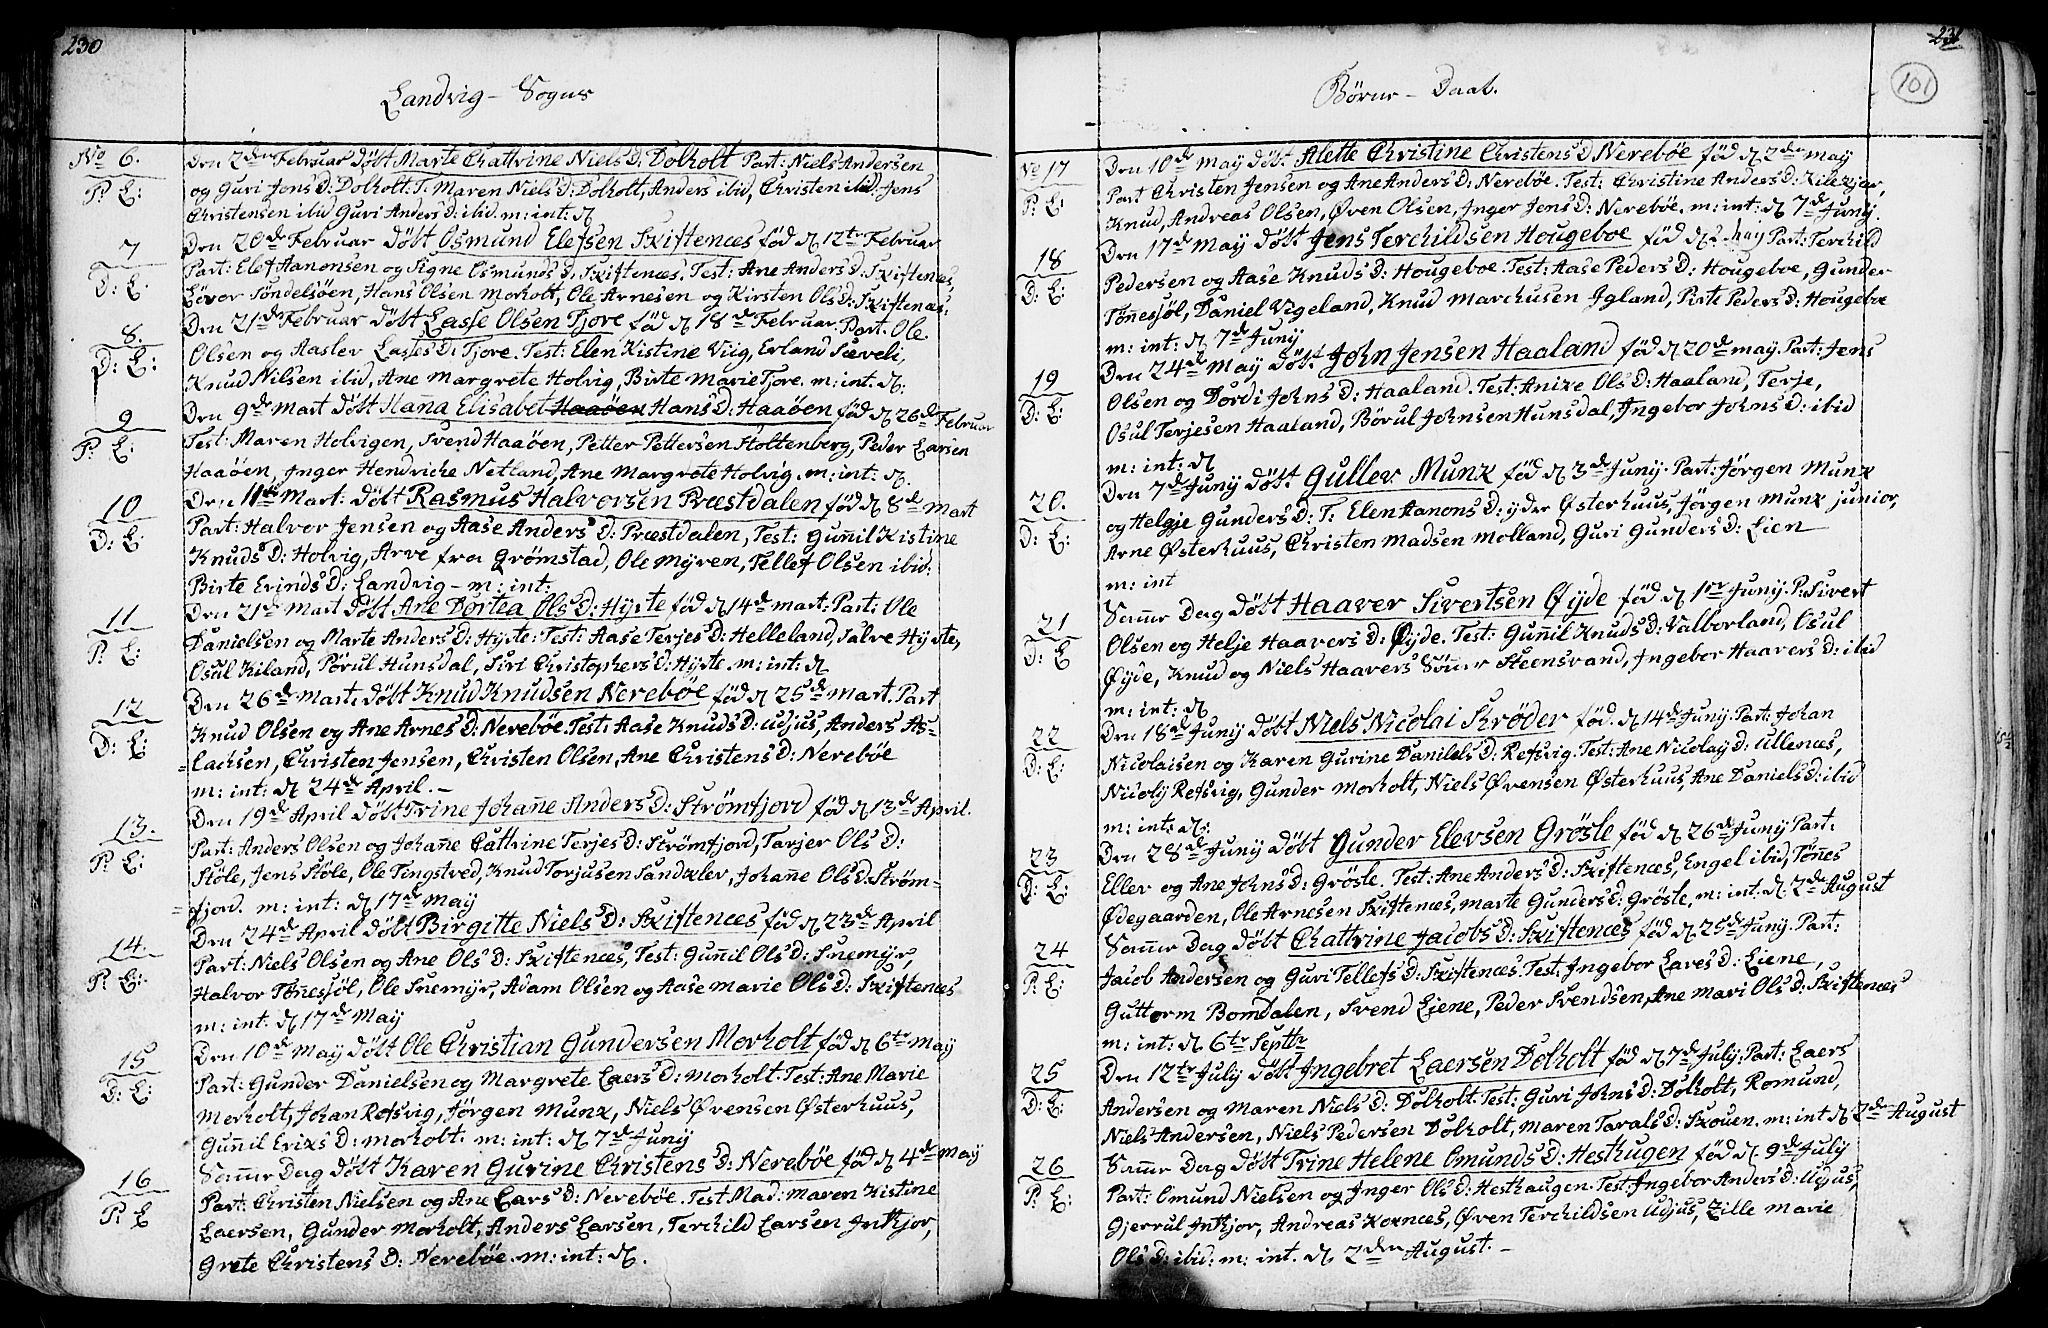 230
Landvig - Sogns
No 6.
P: E:
Den 2den Februar døbt Marte Chattrine Niels D: Dolholt Part: Niels Andersen
og Guri Jens D: Dolholt. T: Maren Niels D: Dolholt, Anders ibid, Christen ibid: Jens
Christensen ibid Guri Anders D: ibid. m: int: d
7
D: E:
Den 20de Februar døbt Osmund Elefsen Skiftenæs fød d 12te Februar
Part: Elef Aanonsen og Signe Osmunds D: Skiftenæs. Test: Ane Anders D: Skiftenæs,
Løvor Søndelsöen, Hans Olsen Morholt, Ole Arnesen og Kirsten Ols D: Skiftenæs:
8.
D: E:
Den 21de Februar døbt Lasse Olsen Fjore fød d 18de Februar. Part. Ole
Olsen og Aaslev Lasses D: Fjore. Test: Elen Kistine Viig, Erland Sæveli,
Knud Nilsen ibid, Ane Margrete Holvig, Birte Marie Fjore. m: int: d:
9
P: E:
Den 9de Mart døbt Hanna Elisabet Haaöen Hans D: Haaöen fød d 26de Februar
Test: Maren Holvigen, Svend Haaöen, Petter Pettersen Stoltenberg, Peder Larsen
Haaöen, Inger Hendriche Netland, Ane Margrete Holvig. m: int: d.
10
D: E:
Den 11te Mart: døbt Rasmus Halvorsen Præstdalen fød d 8de Mart
Part: Halvor Jensen og Aase Anders D: Præstdalen, Test: Gunnil Kistine
Knuds D: Holvig, Arve fra Grömstad, Ole Myren, Tellef Olsen ibid:
Birte Erinds D: Landvig - m: int:
11
P: E:
Den 21de Mart døbt Ane Dortea Ols D: Hyrte fød d 14de mart: Part: Ole
Danielsen og Marte Anders D: Hyrte: Test: Aase Terjes D: Helleland, Salve Hyrte,
Osul Kiland, Pörul Hunsdal, Siri Christophers D: Hyrte. m: int: d
12
D: E:
Den 26de Mart. døbt Knud Knudsen Nerebøe fød d 25de Mart. Part
Knud Olsen og Ane Arnes D: Nerebøe. Test: Aase Knuds D: Udjus, Anders As-
=lachsen, Christen Jensen, Christen Olsen, Ane Christens D: Nerebøe
m: int: d 24de April. -
13.
P: E:
Den 19de April døbt Trine Johanne Anders D: Strömfjord fød d 13de April.
Part: Anders Olsen og Johanne Cattrine Terjes D: Strömfjord, Tarjer Ols D:
Støle, Jens Støle, Ole Tingstved, Knud Torjusen Sandklev, Johanne Ols D: Ström-
=fjord. m: int: d 17de May
14.
P: E:
Den 24de April døbt Birgitte Niels D: Skiftenæs fød d 23de April
Part: Niels Olsen og Ane Ols D: Skiftenæs, Test: Gunnil Ols D: Snemyr,
Halvor Tønnesöl, Ole Snemyr, Adam Olsen og Aase Marie Ols D: Skiftenæs
m: int. d 17de May
15
D: E:
Den 10de May døbt Ole Christian Gundersen Morholt fød d 6te May
Part: Gunder Danielsen og Margrete Laers D: Morholt. Test: Ane Marie
Morholt, Johan Refsvig, Jørgen Munk, Niels Øvensen Østerhuus,
Gunnil Eriks D: Morholt. m: int: d 7de Juny
16
P: E
Samme Dag døbt Karen Gurine Christens D: Nerebøe fød d 4de May
Part: Christen Nielsen og Ane Lars D: Nerebøe. Test Mad: Maren Kistine
Laersen, Gunder Morholt, Anders Larsen, Terchild Larsen Inkjor,
Grete Christens D: Nerebøe. m: int: d.
231
101
Børne - Daab.
No 17
P: E:
Den 10de May døbt Alette Christine Christens D Nerebøe fød d 2de May
Part Christen Jensen og Ane Anders D: Nerebøe. Test: Christine Anders D: Kilekjær,
Knud, Andreas Olsen, Øven Olsen, Inger Jens D: Nerebøe. m: int: d 7de Juny.
18
D: E:
Den 17de May døbt Jens Terchildsen Hougeboe fød d May Part: Terchild
Pedersen og Aase Knuds D: Hougeboe. Test: Aase Peders D: Hougeboe, Gunder
Tønnesöl, Daniel Vigeland, Knud Marchusen Igland, Pirte Peders D: Hougeboe
m: int: d 7de Juny
19
D: E:
Den 24de May døbt John Jensen Haaland fød d 20de May. Part: Jens
Olsen og Dordi Johns D: Haaland. Test: Anike Ols D: Haaland, Terje,
Osul Terjesen Haaland, Börul Johnsen Hunsdal, Ingebor Johns D: ibid
m: int: d
20.
D: E:
Den 7de Juny døbt Gullev Munk fød d 3de Juny. Part: Jørgen Munk
og Helgje Gunders D: T: Elen Aanons D: ijder Østerhuus, Jørgen Munk junior,
Arne Østerhuus, Christen Madsen Molland, Guri Gunders D: Lien
m: int
21
D: E
Samme Dag døbt Haaver Sivertsen Øyde fød d 1te Juny. P: Sivert
Olsen og Helje Haavers D: Øyde. Test: Gunnil Knuds D: Valborland, Osul
Øyde, Knud og Niels Haavers Sønner Steensvand, Ingebor Haavers D: ibid
m: int: d
22
D: E:
Den 18de Juny døbt Niels Nicolai Skrøder fød. d 14de Juny. Part: Johan
Nicolaisen og Karen Gurine Daniels D: Refsvig. Test: Ane Nicolay D: Ullenæs,
Nicoly Refsvig, Gunder Morholt, Niels Øvensen Østerhuus, Ane Daniels D: ibid
m: int: d:
23
D: E:
Den 28de Juny døbt Gunder Elevsen Grösle fød d 26de Juny Part:
Ellev og Ane Johns D: Grösle. Test: Ane Anders D: Skiftenæs, Engel ibid, Tønnes
Ødegaarden, Ole Arnesen Skiftenæs, Marte Gunders D: Grösle, m: int: d. 2de August
24
P: E:
Samme Dag døbt Chattrine Jacobs D: Skiftenæs fød d 25de Juny. Part:
Jacob Andersen og Guri Tellefs D: Skiftenæs. Test: Ingebor Laves D: Liene,
Guttorm Bomdalen, Svend Liene, Peder Svendsen, Ane Mari Ols D: Skiftenæs
m: int: d 6te Septbr
25
D: E:
Den 12te July døbt Ingebret Laersen Dolholt fød d 7de July: Part: Laers
Andersen og Maren Niels D: Dolholt. Test: Guri Johns D: Dolholt, Romund,
Niels Andersen, Niels Pedersen Dolholt, Maren Tarals D: Skouen. m: int d 2de August
26
P: E:
Samme Dag døbt Trine Helene Omunds D: Hesthugen fød d 9de July
Part: Omund Nielsen og Inger Ols D: Hesthaugen. Test: Ingebor Anders D: Udjus,
Gjerrul Inkjor, Andreas Kornæs, Øven Terchildsen Udjus, Zille Marie
Ols D: ibid: m: int. d 2den August. -